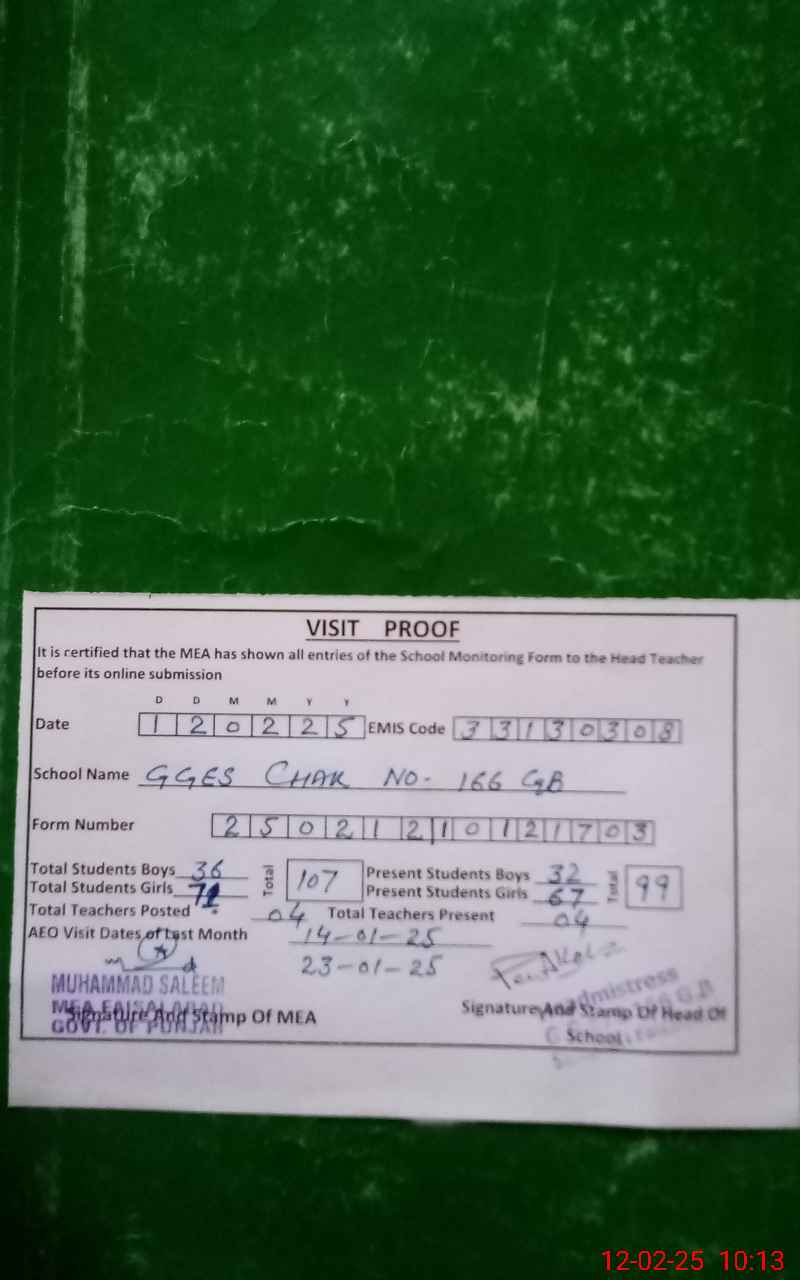 VISIT PROOF
It is certified that the MEA has shown all entries of the School Monitoring Form to the Head Teacher
before its online submission
D D M M Y Y
Date 1 2 0 2 2 5 EMIS Code 3 3 1 3 0 3 0 8
School Name GGES CHAK NO- 166 GB
Form Number 2 5 0 2 1 2 1 0 1 2 1 7 0 3
Total Students Boys 36 Total 107 Present Students Boys 32 Total 99
Total Students Girls 71 Present Students Girls 67
Total Teachers Posted 04 Total Teachers Present 04
AEO Visit Dates of Last Month 14-01-25
23-01-25
MUHAMMAD SALEEM
MEA FAISALABAD
GOVT. OF PUNJAB
Signature And Stamp Of MEA
Signature And Stamp Of Head Of
School
12-02-25 10:13